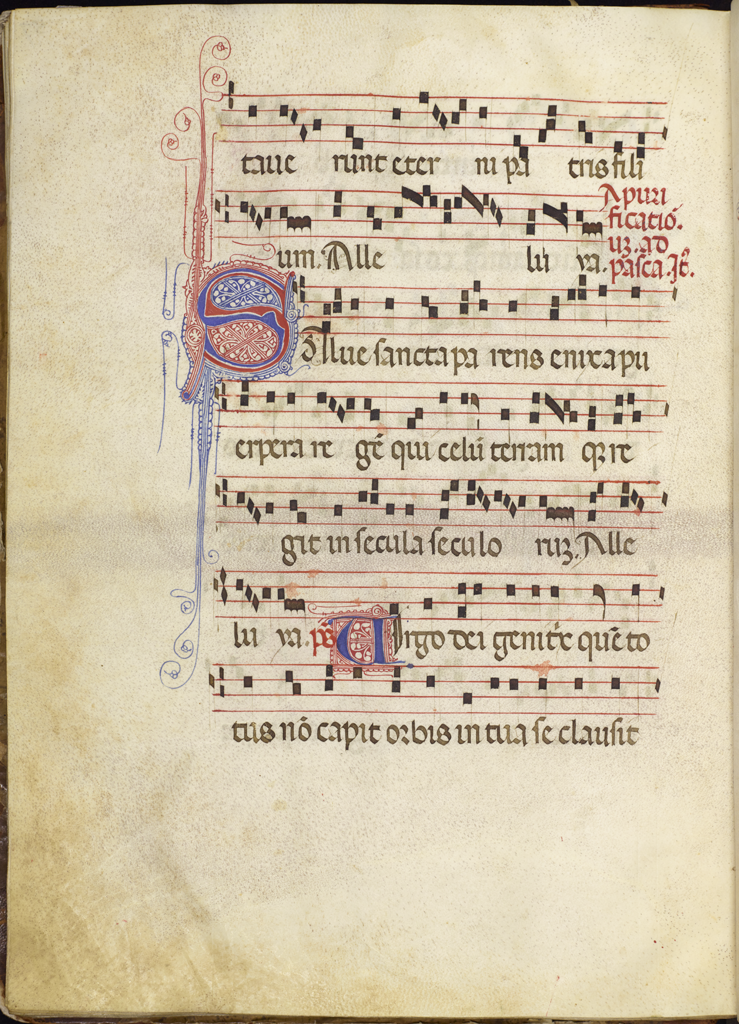 taue runt eter ni pa tris fili
um. Alle lu ya. A puri
ficatiō.
uꝫ. ad
pasca. Jt̄.
SAlue sancta pa rens enixa pu
erpera re gē qui celū terram qꝫ re
git in secula seculo ruꝫ. Alle
lu ya. p̄s Uirgo dei genitͥx quē to
tus nō capit orbis in tua se clausit